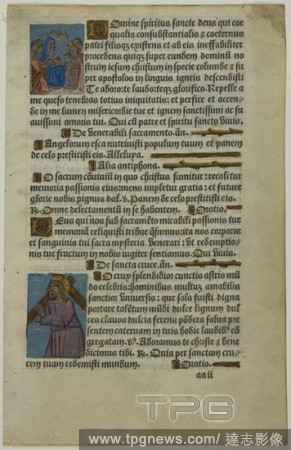 Domine spiritus sancte deus qui coe
qualis consubstantialis & coeternus
patri filioqz existens et ab eis ineffabiliter
procedens quiqz super eundem dominū no
strum iesum christum in specie columbe & su
per apostolos in linguis igneis descendisti
Te adoro: te laudo: teqz glorifico. Repelle a
me queso tenebras totius iniquitatis: et perfice et accen
de in me lumen misericordie tue et ignem sanctissimi ac su
auissimi amoris tui. Qui cū patre et spiritu sancto viuis.
De venerabili sacramento. an.
Angelorum esca nutriuisti populum tuum et panem
de celo prestitisti eis. Alleluya.
Alia antiphona.
O sacrum cōuiuiū in quo christus sumitur: recolitur
memoria passionis eius: mens impletur gratia: et future
glorie nobis pignus daf. v. Panem de celo prestitisti eis.
R. Omne delectamentū in se habentem. Oratio.
Deus qui nos sub sacramēto mirabili passionis tue
memoriā reliquisti tribue qsumus: ita nos corporis
et sanguinis tui sacra mysteria venerari: vt redemptio
nis tue fructum in nobis iugiter sentiamus. Qui viuis.
De sancta cruce. an.
O crux splendidior cunctis astris mū
do celebris: hominibus multuz amabilis
sanctior vniuersis: que sola fuisti digna
portare talētum mūdi dulce lignum dul
ces clauos dulcia ferens pōdera salua pre
sentem cateruam in tuis hodie laudibꝰ cō
gregatam. v. Adoramus te christe & bene
dicimus tibi. R. Quia per sanctam cru
cem tuam redemisti mundum. Oratio.
aa ii
TPG
www.tpgnews.com / 達志影像